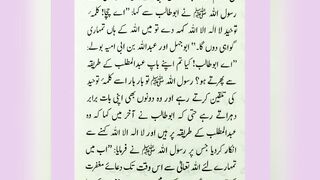 رسول اللہ ﷺ نے ابوطالب سے کہا، "اے چچا! کلمۂ تو
حید لا الہ الا اللہ کہہ دے تو میں اللہ کے ہاں تمہاری
گواہی دوں گا۔" ابوجہل اور عبداللہ بن ابی امیہ بولے:
"اے ابوطالب! کیا تم اپنے باپ عبدالمطلب کے طریقہ
سے پھرتے ہو؟ رسول اللہ ﷺ تو بار بار اسے کلمۂ توحید
کی تلقین کرتے رہے اور وہ دونوں بھی اپنی بات برابر
دہراتے رہے حتی کہ ابوطالب نے آخر میں کہا کہ وہ
عبدالمطلب کے طریقہ پر ہیں اور لا الہ الا اللہ کہنے سے
انکار کردیا جس پر رسول اللہ ﷺ نے فرمایا: "اب میں
تمہارے لئے اللہ تعالیٰ سے اس وقت تک دعائے مغفرت